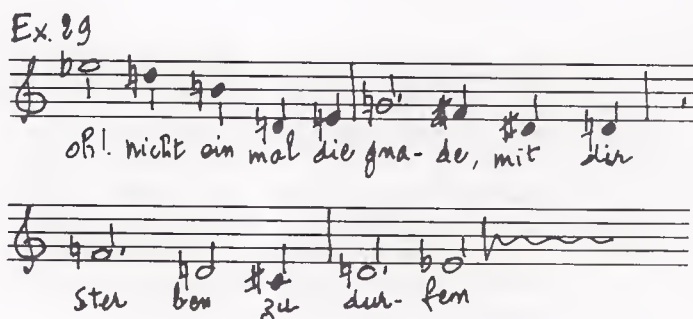 Ex. 29
oh!. nicht ein mal die gna-de, mit dir
ster ben zu dur-fen